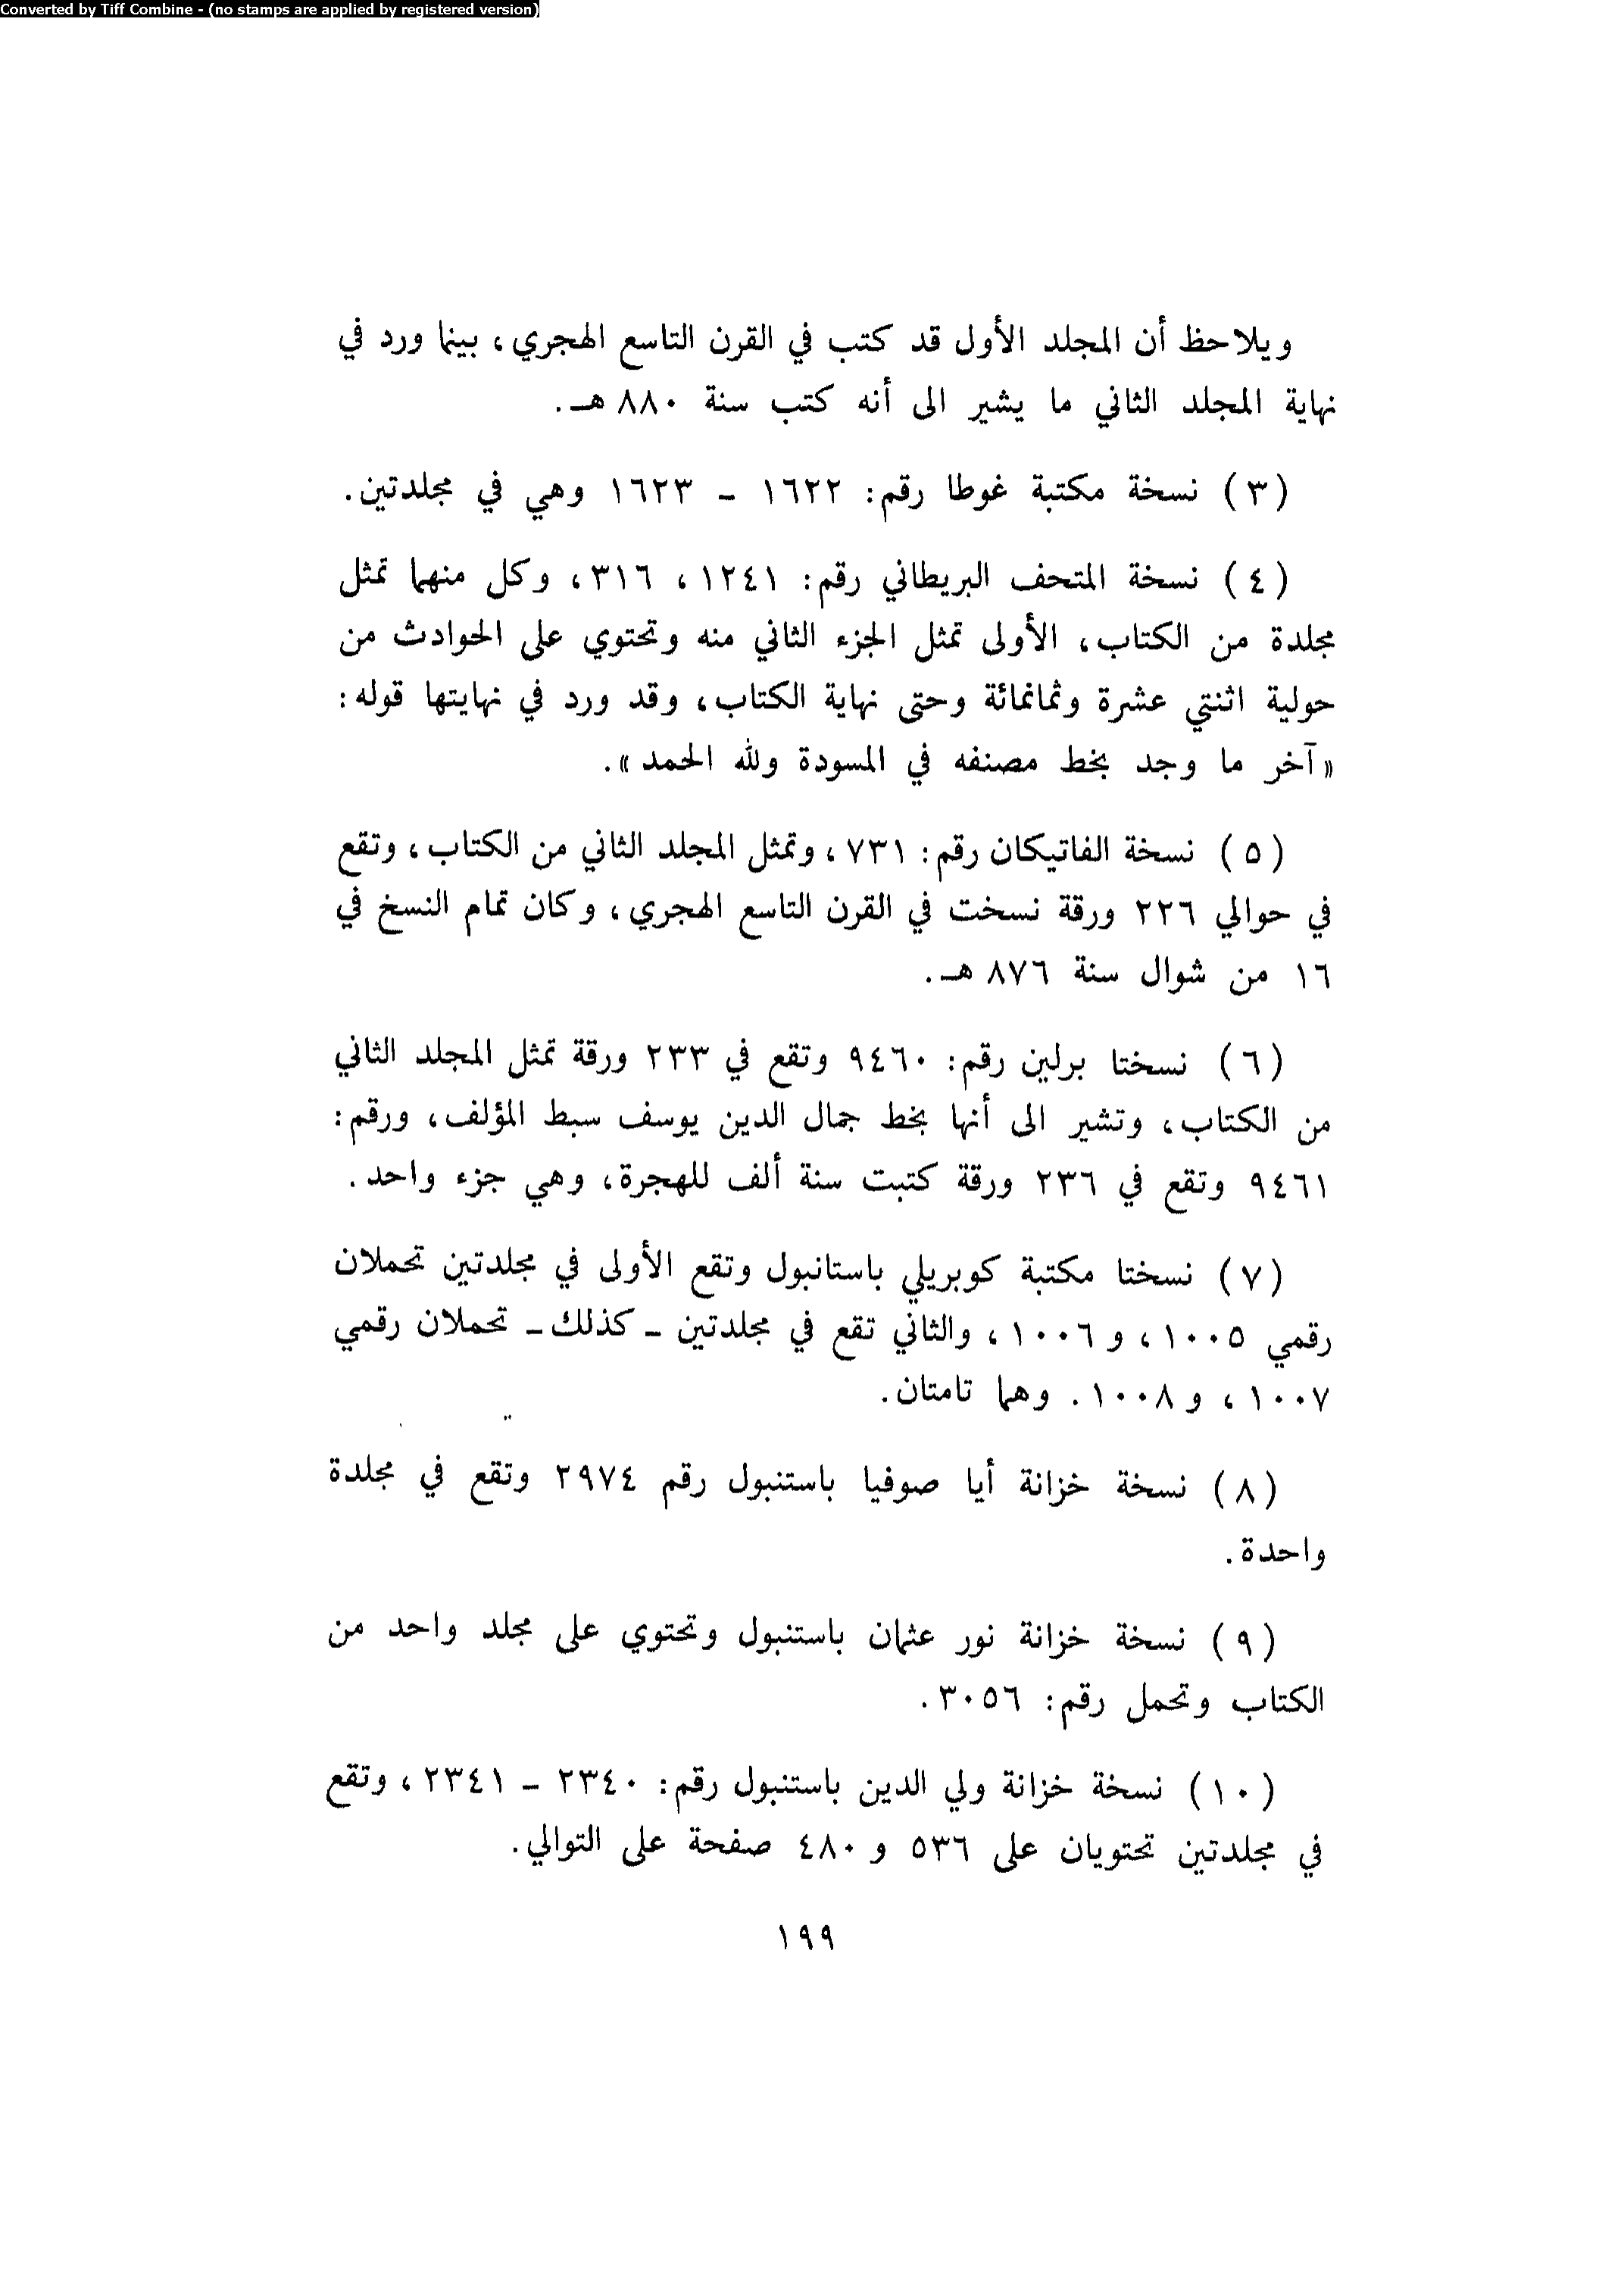 Converted by Tiff Combine - (no stamps are applied by registered version)
ويلاحظ أن المجلد الأول قد كتب في القرن التاسع الهجري، بينما ورد في
نهاية المجلد الثاني ما يشير الى أنه كتب سنة ٨٨٠ هـ.
(٣) نسخة مكتبة غوطا رقم: ١٦٢٢ - ١٦٢٣ وهي في مجلدتين.
(٤) نسخة المتحف البريطاني رقم: ١٢٤١، ٣١٦، وكل منهما تمثل
مجلدة من الكتاب، الأولى تمثل الجزء الثاني منه وتحتوي على الحوادث من
حولية اثنتي عشرة وثمانمائة وحتى نهاية الكتاب، وقد ورد في نهايتها قوله:
«آخر ما وجد بخط مصنفه في المسودة ولله الحمد».
(٥) نسخة الفاتيكان رقم: ٧٣١، وتمثل المجلد الثاني من الكتاب، وتقع
في حوالي ٢٢٦ ورقة نسخت في القرن التاسع الهجري، وكان تمام النسخ في
١٦ من شوال سنة ٨٧٦ هـ.
(٦) نسختا برلين رقم: ٩٤٦٠ وتقع في ٢٣٣ ورقة تمثل المجلد الثاني
من الكتاب، وتشير الى أنها بخط جمال الدين يوسف سبط المؤلف، ورقم:
٩٤٦١ وتقع في ٢٣٦ ورقة كتبت سنة ألف للهجرة، وهي جزء واحد.
(٧) نسختا مكتبة كوبريلي باستانبول وتقع الأولى في مجلدتين تحملان
رقمي ١٠٠٥، و ١٠٠٦، والثاني تقع في مجلدتين - كذلك - تحملان رقمي
١٠٠٧، و ١٠٠٨. وهما تامتان.
(٨) نسخة خزانة أيا صوفيا باستنبول رقم ٢٩٧٤ وتقع في مجلدة
واحدة.
(٩) نسخة خزانة نور عثمان باستنبول وتحتوي على مجلد واحد من
الكتاب وتحمل رقم: ٣٠٥٦.
(١٠) نسخة خزانة ولي الدين باستنبول رقم: ٢٣٤٠ - ٢٣٤١، وتقع
في مجلدتين تحتويان على ٥٣٦ و ٤٨٠ صفحة على التوالي.
١٩٩